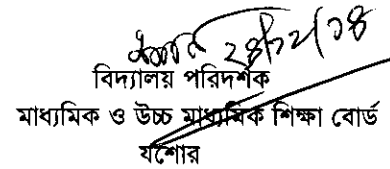 ২৪/১২/১৪
বিদ্যালয় পরিদর্শক
মাধ্যমিক ও উচ্চ মাধ্যমিক শিক্ষা বোর্ড
যশোর